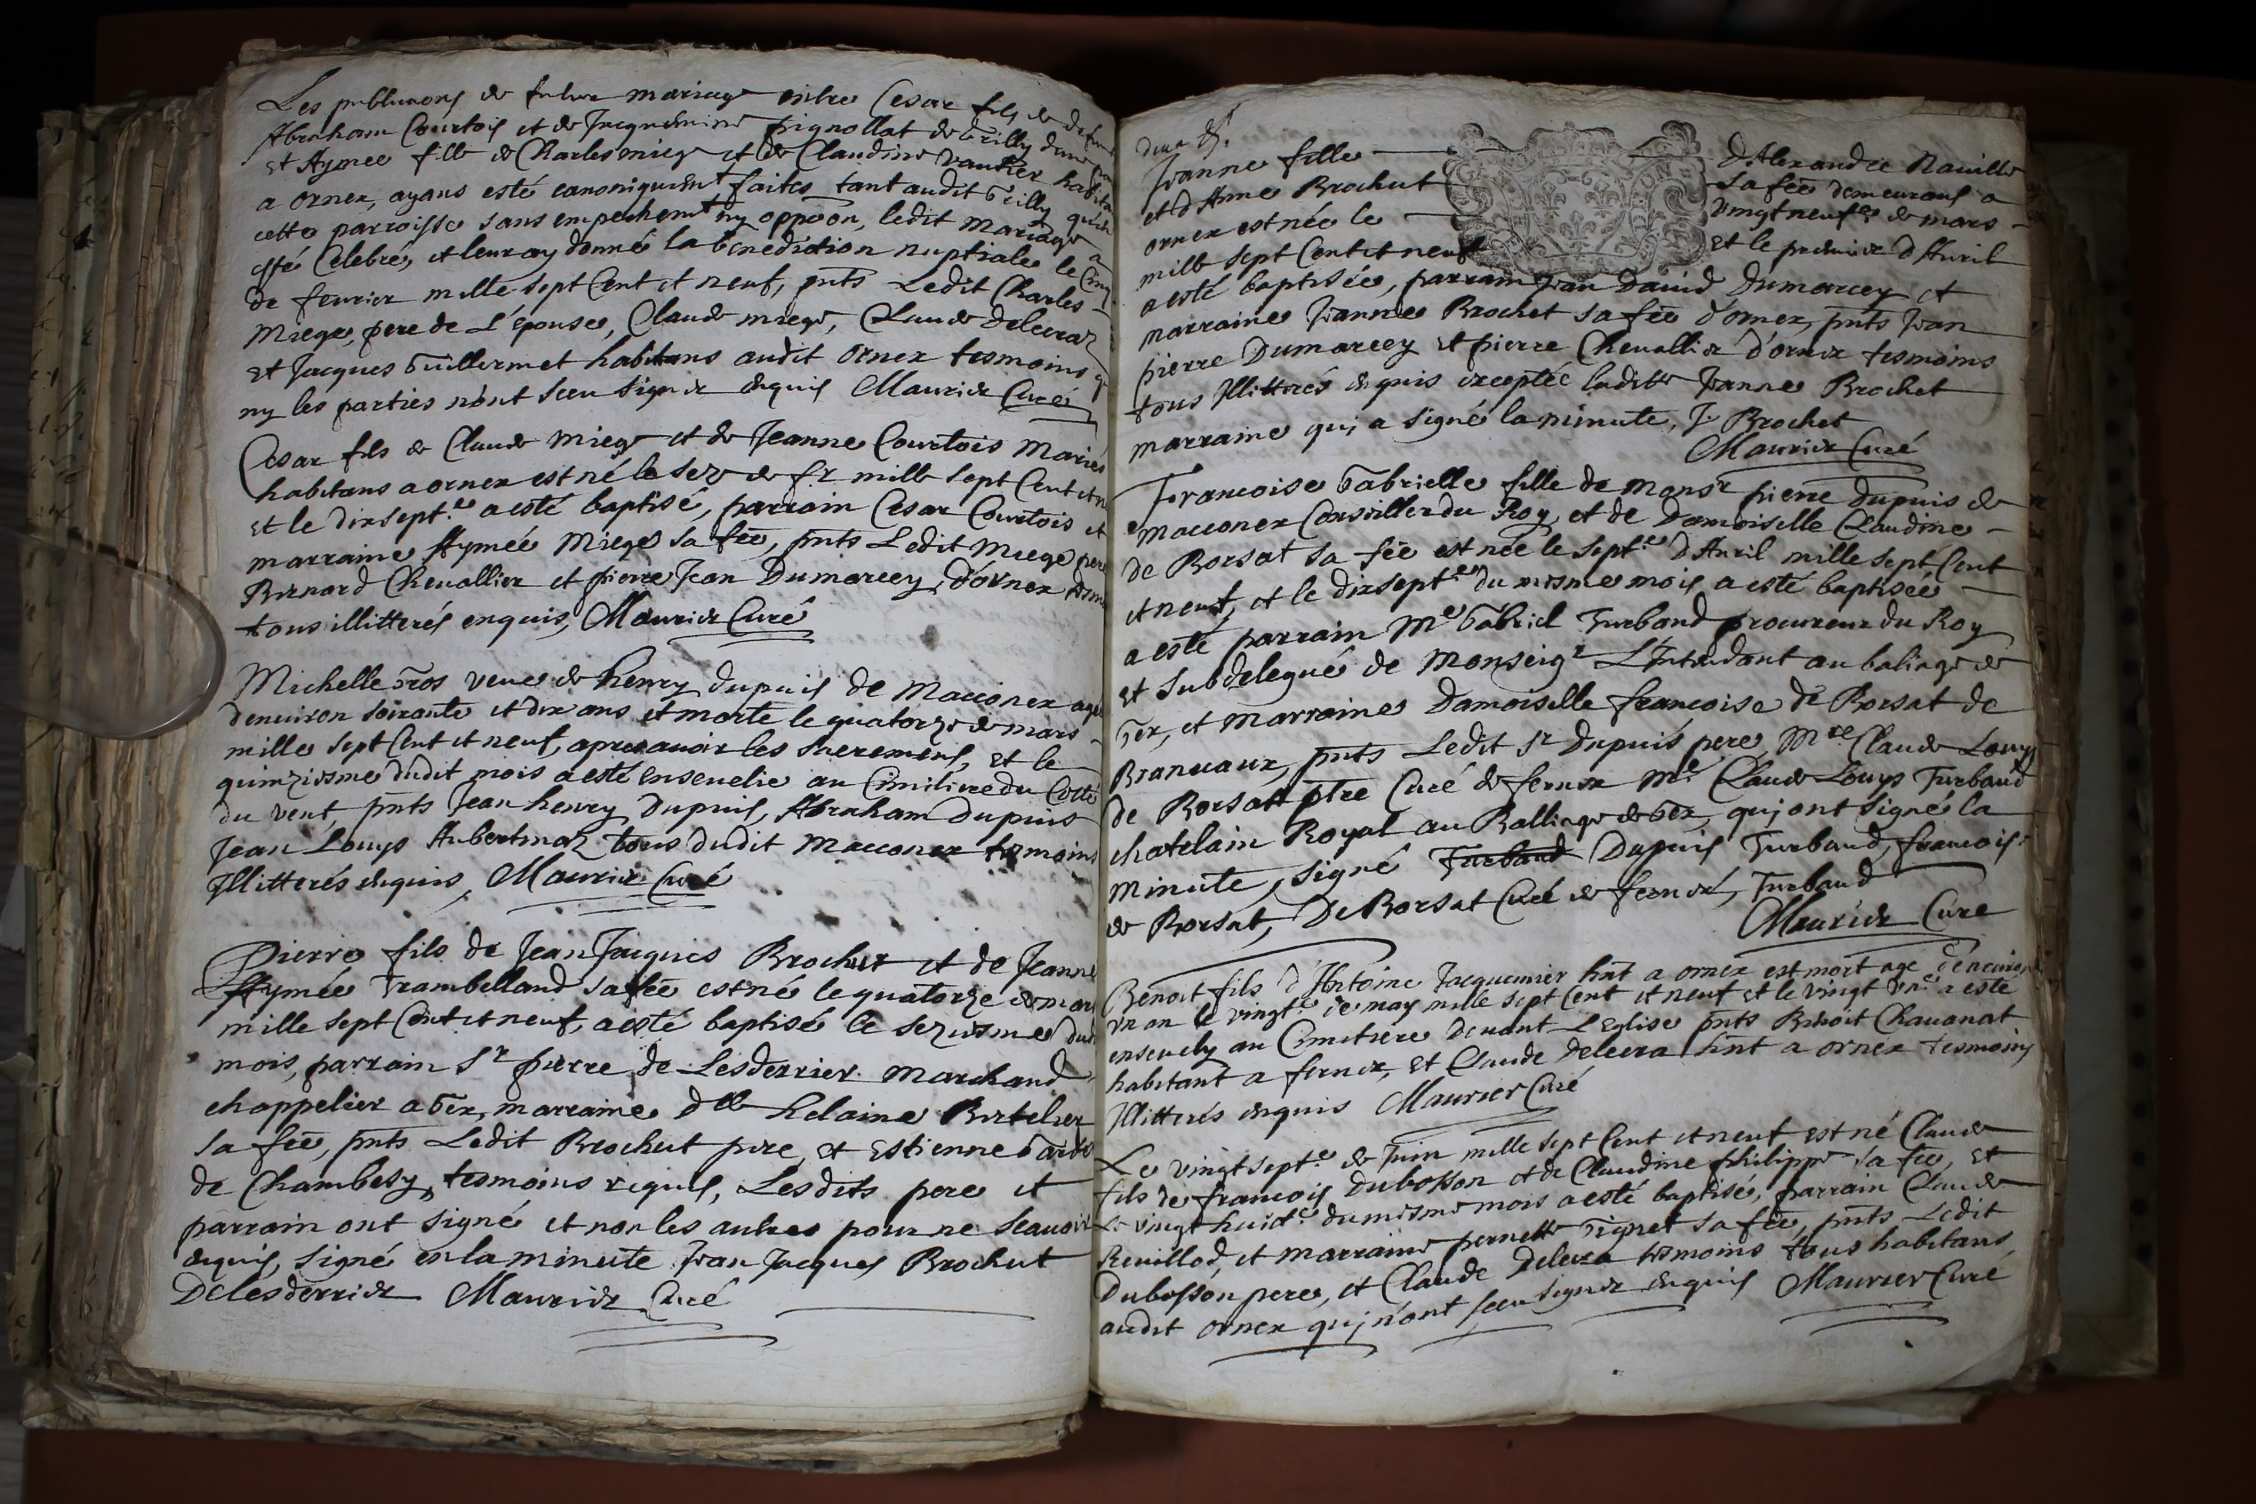 Les publicaõns de futur mariage entre Cesar fils de defunt
Abraham Courtois et de Jacquemine pignollat de Grilly dune
et Aymee fille de Charles miege et de Claudine vautier habita
a ornex, ayans esté canoniquemt faites tant audit Grilly qu'en
cette parroisse sans empechemt ny oppoõn, ledit mariage a
esté Celebré, et leur ay donné la benediction nuptiale le Cinq
de feurier mille sept Cent et neuf, pnts Ledit Charles
Miege, pere de L'épouse, Claude miege, Claude Delecraz
et Jacques Guillermet habitans audit ornex tesmoins q
ny les parties n'ont sceu signer enquis Maurier Curé
Cesar fils de Claude Miege et de Jeanne Courtois Mariés
habitans a ornex est né le seze de fr mille sept Cent et n
et le dixsept.e a esté baptisé, parrain Cesar Courtois et
marraine Aymée Miege sa fẽe, pnts Ledit miege pere
Bernard Cheuallier et pierre Jean Dumarcey, d'ornex
tous illitterés enquis, Maurier Curé
Michelle Gros veuue de henry dupuis de Macconex agée
denuiron soixante et dix ans est morte le quatorze de mars
mille sept Cent et neuf, apres auoir les sacremens, et le
quinziesme dudit mois a esté enseuelie au Cimitiere du Cotté
du vent, pnts Jean henry Dupuis, Abraham Dupuis
Jean Louys Aubertmaz tous dudit Macconex tesmoins
Illitterés enquis, Maurier Curé
Pierre fils de Jean Jacques Brochut et de Jeanne
Aymée Trambelland sa fẽe est né le quatorze de mar
mille sept Cent et neuf, a esté baptisé le seziesme dud
mois, parrain Sr pierre de Lesderrier Marchand
chappelier a Gex, marraine dlle helaine Bertelier
sa fẽe, pnts Ledit Brochut pere, et Estienne Garde
de Chambesy tesmoins requis, Lesdits pere et
parrain ont signé et non les autres pour ne Scauoir
enquis, signé en la minute Jean Jacques Brochut
Delesderrier Maurier Curé
Deux S.
Jeanne fille d'Alexandre Nauille
et d'Anne Brochut sa fẽe demeurans a
ornex est née le vingt neuf.e de mars
mille sept Cent et neuf et le premier d'Auril
a esté baptisée, parrain Jean Dauid Dumarcey et
marraine Jeanne Brochet sa fẽe d'ornex, pnts Jean
pierre Dumarcey et pierre Cheuallier d'ornex tesmoins
tous Illitterés enquis exceptée ladite Jeanne Brochet
marraine qui a signé la minute, J. Brochet
Maurier Curé
Francoise Gabrielle fille de Monsr pierre dupuis de
Macconex Conseiller du Roy, et de Damoiselle Claudine
de Borsat sa fẽe est née le sept.e d'Auril mille sept Cent
et neuf, et le dixsept.e du mesme mois a esté baptisée
a esté parrain Me Gabriel Turband procureur du Roy
et subdelegué de Monseigr L'Intendant au baliage de
Gex, et marraine Damoiselle francoise de Borsat de
Branuaux, pnts Ledit Sr Dupuis pere, Mre Claude Louys
de Borsat ptre Curé de fernex Me Claude Louys Turband
chatelain Royal au Balliage de Gex, qui ont signé la
minute, signé Turband Dupuis Turband, francoise
de Borsat, De Borsat Curé de fernex, Turband
Maurier Cure
Benoit fils d'Antoine Jacquemier hnt a ornex est mort agé d'enuiron
vn an le vingt.e de may mille sept Cent et neuf et le vingt vn.e a esté
enseuely au Cimitiere deuant L'Eglise pnts Benoit Chauanat
habitant a fernex, et Claude Delecra hnt a ornex tesmoins
Illitterés enquis Maurier Curé
Le vingt sept.e de Juin mille sept Cent et neuf est né Claude
fils de francois Dubosson et de Claudine philippe sa fẽe, et
Le vingt huict.e du mesme mois a esté baptisé, parrain Claude
Reuillod, et marraine pernette Vignet sa fẽe, pnts Ledit
Dubosson pere, et Claude Delecra tesmoins tous habitans,
audit ornex qui n'ont sceu signer enquis Maurier Curé